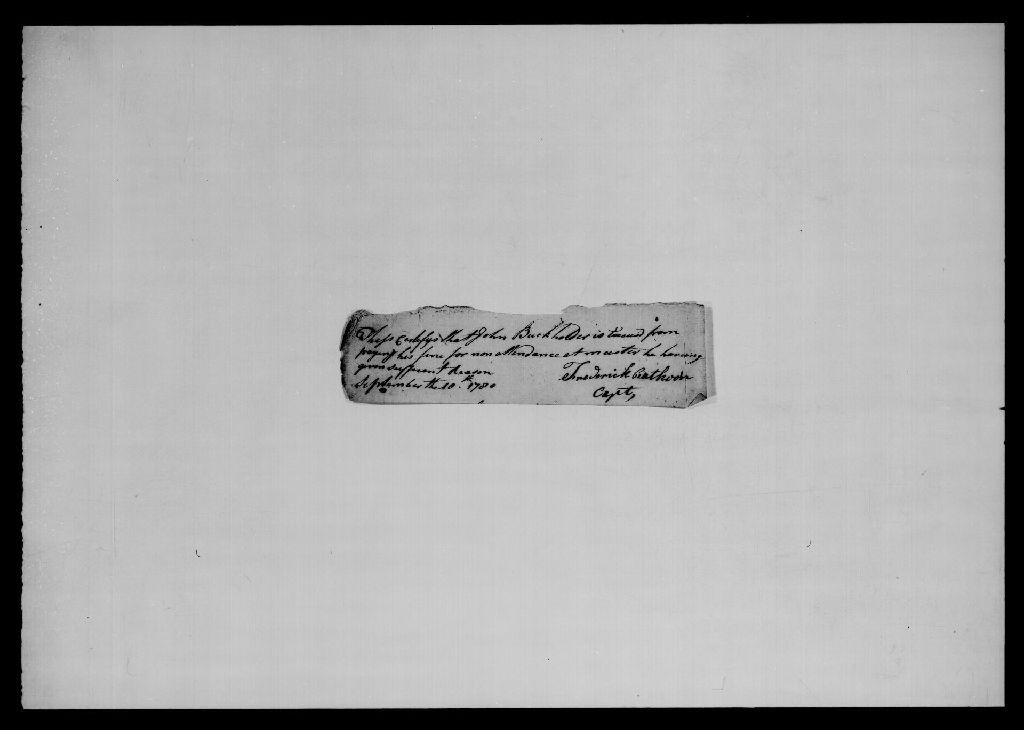 These Certifys that John Buckholder is from
his fine for non attendance at muster he having
given Reason
September the 10th 1780
Frederick
Capt